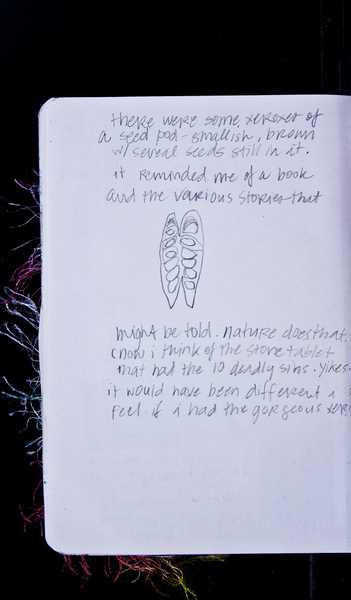 there were some xeroxes of
a seed pod - smallish, brown
w/ several seeds still in it.
it reminded me of a book
and the various stories that
might be told. nature does that.
(now i think of the stone tablet
that had the 10 deadly sins. yikes.
it would have been different i
feel if i had the gorgeous